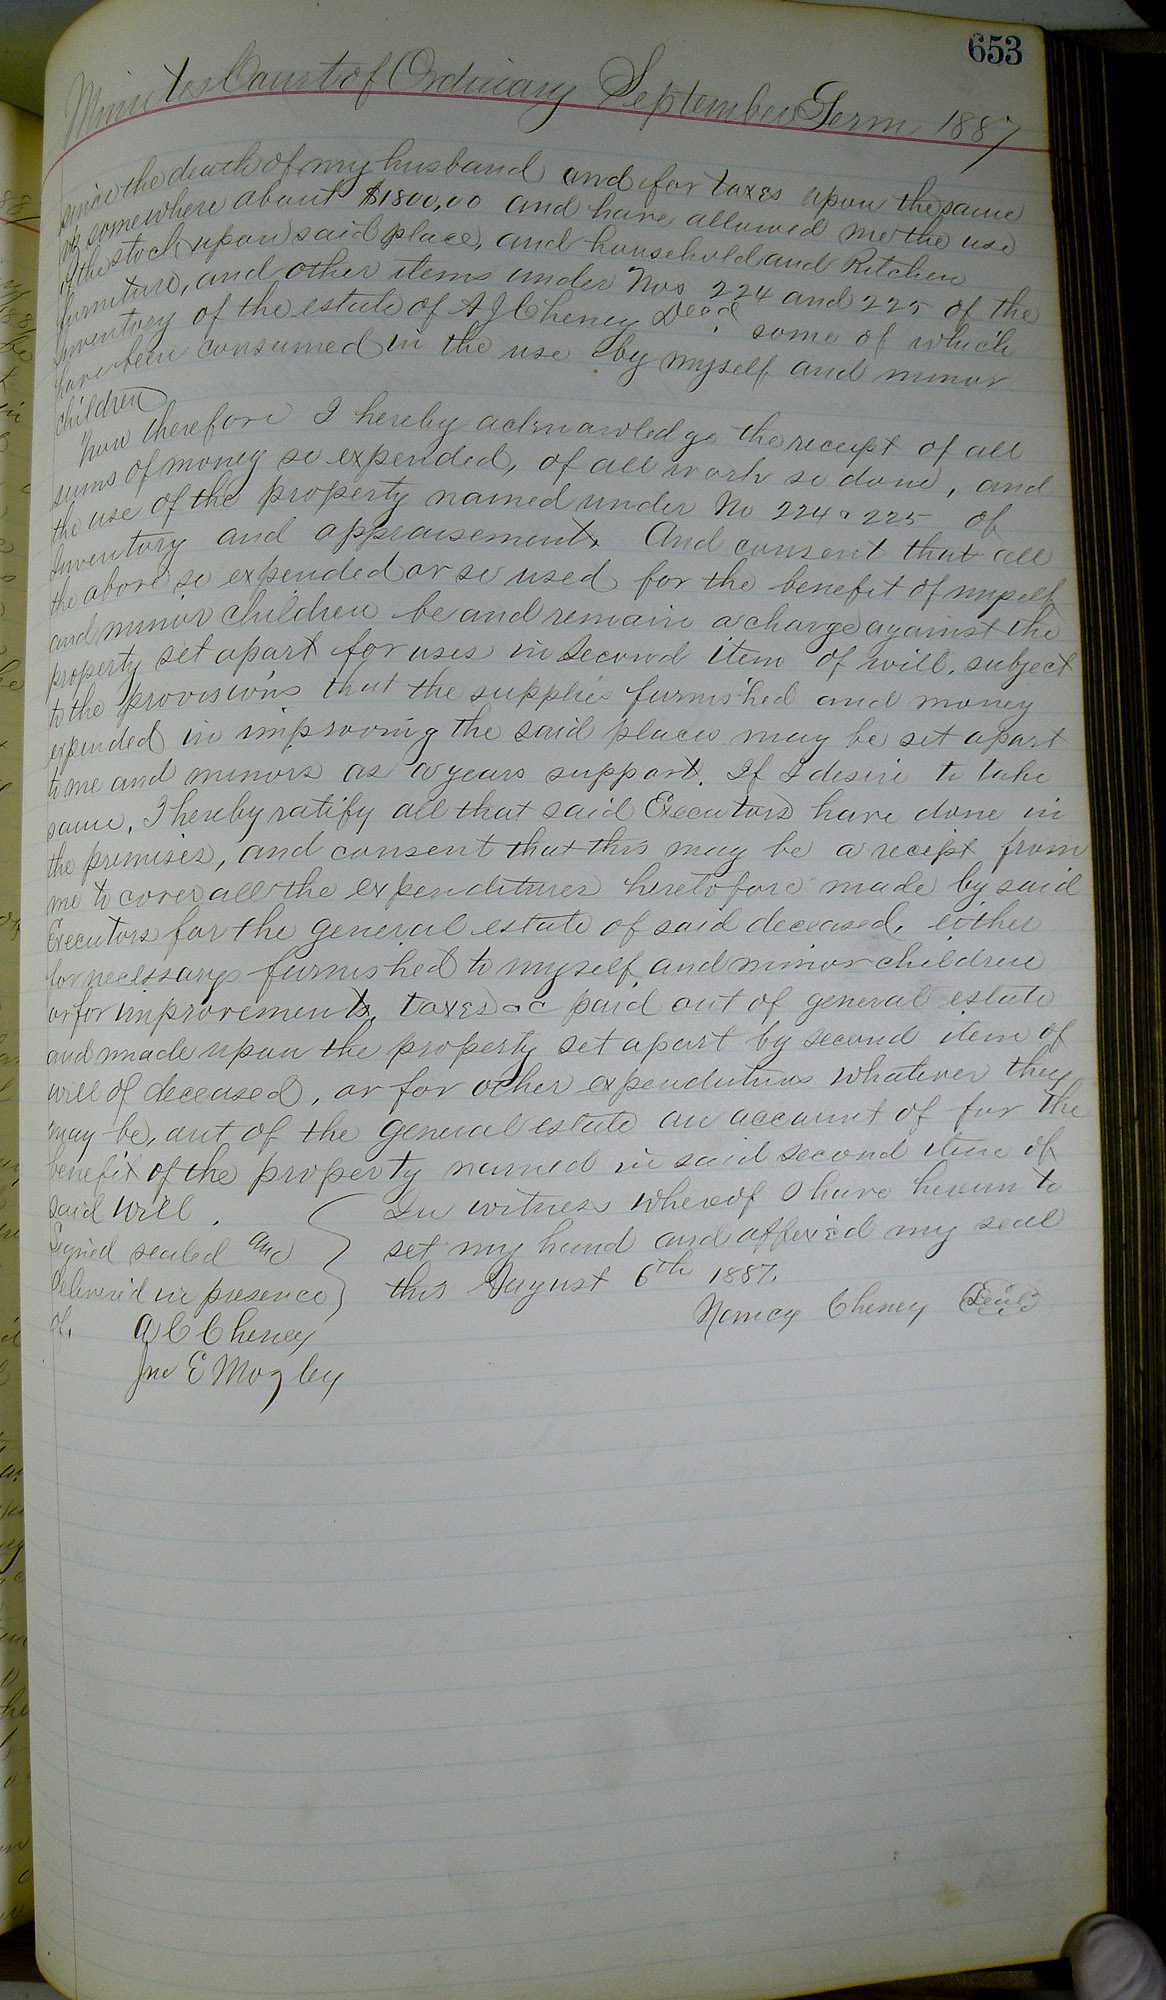 653
Minutes Court of Ordinary September Term 1887
since the death of my husband and for taxes upon the same
somewhere about $1800,00 and have allowed me the use
of the stock upon said place, and household and Kitchen
furniture, and other items under Nos 224 and 225 of the
Inventory of the estate of A J Cheney Decd. some of which
have been consumed in the use by myself and minor
children
Now therefore I hereby acknowledge the receipt of all
sums of money so expended, of all work so done, and
the use of the property named under No 224 & 225 of
Inventory and appraisement. And consent that all
the above so expended or so used for the benefit of myself
and minor children be and remain a charge against the
property set apart for uses in Second item of will. subject
to the provosions that the supplies furnished and money
expended in improving the said places may be set apart
to me and minors as a years support. If I desire to take
same, I hereby ratify all that said Executors have done in
the premises, and consent that this may be a reciept from
me to cover all the expenditures heretofore made by said
Executors for the general estate of said deceased, either
for necessarys furnished to myself and minor children
or for improvements, taxes &c paid out of general estate
and made upon the property set apart by second item of
will of deceased, or for other expenditures whatever they
may be, out of the general estate on account of for the
benefit of the property named in said second item of
said will.
In witness whereof I have hereunto
set my hand and affixed my seal
this August 6th 1887.
Nancy Cheney Seal
Signed sealed and
delivered in presence
of,
A C Cheney
Jno E Mozley